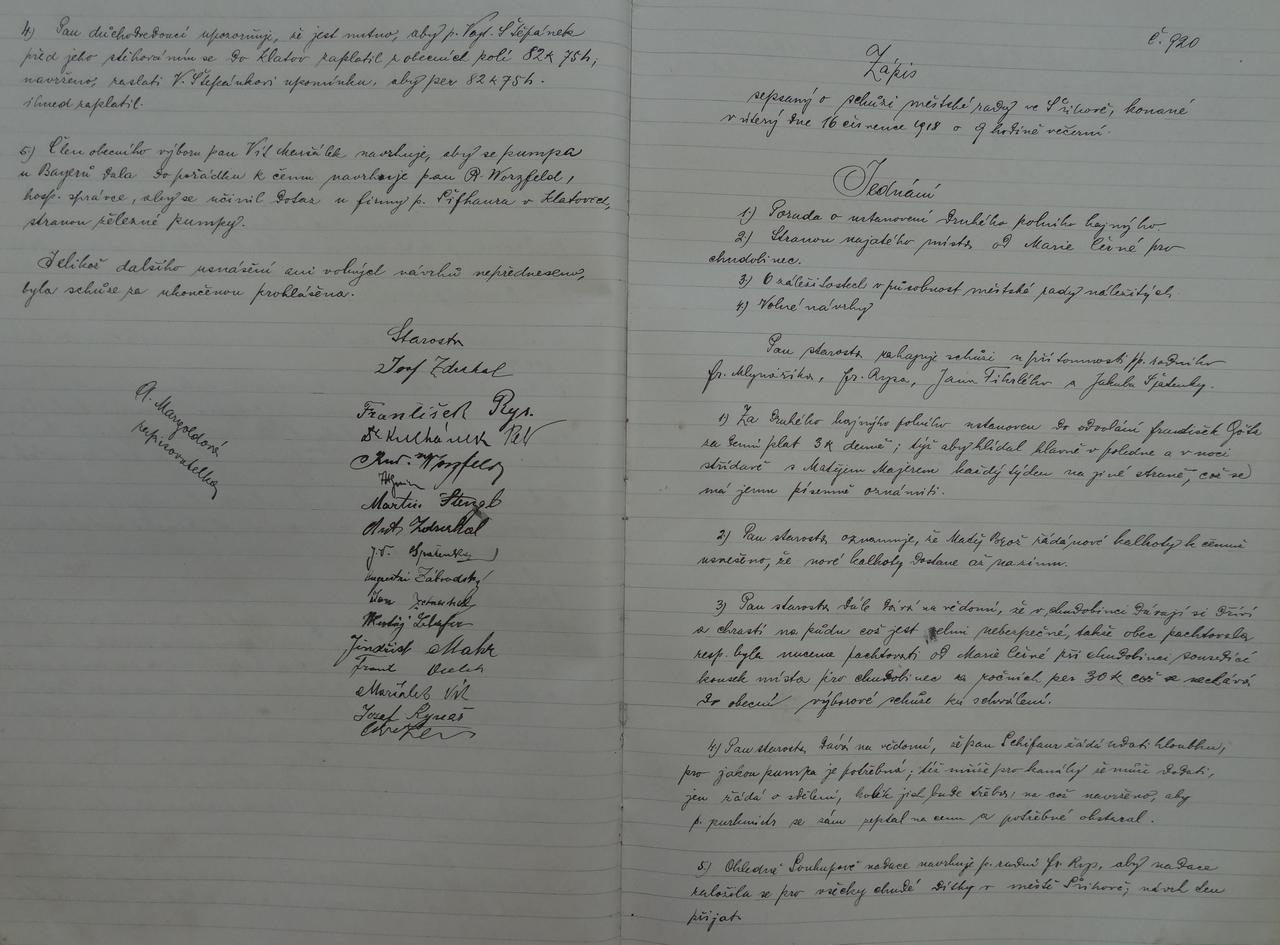 4) Pan důchodvedoucí upozorňuje, že jest nutno, aby p. Vojt. Štěpánek
před jeho stěhováním se do Klatov zaplatil z obecních polí 82 K 75 h;
navrženo, zaslati V. Štěpánkovi upomínku, aby per 82 K 75 h.
ihned zaplatil.
5) Člen obecního výboru pan Vít Maršálek navrhuje, aby se pumpa
u Bayerů dala do pořádku k čemu navrhuje pan A. Worzfeld,
hosp. správce, aby se učinil dotaz u firmy p. Šifhaura v Klatovech,
stranou železné pumpy.
Jelikož dalšího usnášení ani volných návrhů nepředneseno,
byla schůze za ukončenou prohlášena.
Starosta
Josef Zdrhal
A. Margoldová
zapisovatelka
František Rys.
Dr Kulhánek
And. Worzfeld
Martin Stengl
Ant. Zdrhal
Augustin Závodský
Jan
Matěj
Jindřich Mahr
Frant
Maršálek Vít
Josef
č. 920
Zápis
sepsaný o schůzi městské rady ve Švihově, konané
v úterý dne 16 července 1918 o 9 hodině večerní.
Jednání
1.) Porada o ustanovení druhého polního hajného
2.) Stranou najatého místa od Marie Černé pro
chudobinec.
3) O záležitostech v působnost městské rady náležitých
4) Volné návrhy
Pan starosta zahajuje schůzi u přítomnosti pp. radního
Fr. Mlynaříka, Fr. Rysa, Jana Tihelého a Jakuba Špádenky.
1) Za druhého hajného polního ustanoven do odvolání František Göts
za denní plat 3 K denně; týž aby hlídal hlavně v poledne a v noci
střídavě s Matějem Majerem každý týden na jiné straně, což se
má jemu písemně oznámiti.
2) Pan starosta oznamuje, že Matěj Brož žádá nové kalhoty k čemuž
usneseno, že nové kalhoty dostane až na zimu.
3) Pan starosta dále dává na vědomí, že v chudobinci dávají si dříví
a chrastí na půdu což jest velmi nebezpečné, takže obec pachtovala
resp. byla nucena pachtovati od Marie Černé při chudobinci sousedící
kousek místa pro chudobinec za ročních per 30 K což se nechává
do obecní výborové schůze ku schválení.
4) Pan starosta dává na vědomí, že pan Schifaur žádá udati hloubku,
pro jakou pumpa je potřebná; též může pro kanály se může dodati,
jen žádá o sdělení, kolik jich bude třeba; na což navrženo, aby
p. purkmistr se sám zeptal na cenu a potřebné obstaral.
5) Ohledně Soukupově nadace navrhuje p. radní Fr. Rys, aby nadace
založila se pro všecky chudé dítky v městě Švihově; návrh ten
přijat.